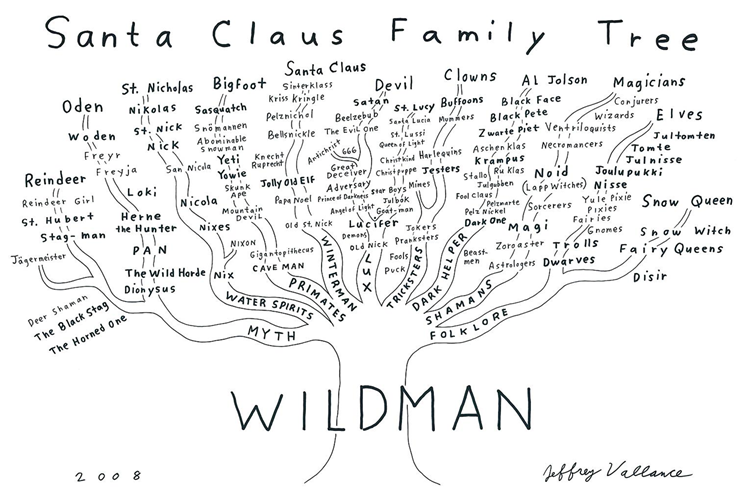 Santa Claus Family Tree
Oden
Woden
Freyr
Freyja
Loki
Herne
the Hunter
PAN
The Wild Horde
Dionysus
Reindeer
Reindeer Girl
St. Hubert
Stag-man
Jägermeister
Deer Shaman
The Black Stag
The Horned One
MYTH
St. Nicholas
Nikolas
St. Nick
Nick
San Nicola
Nicola
Nixes
NIXON
Nix
WATER SPIRITS
Bigfoot
Sasquatch
Snomannen
Abominable
Snowman
Yeti
Yowie
Skunk
Ape
Mountain
Devil
Gigantopithecus
CAVE MAN
PRIMATES
Santa Claus
Sinterklass
Kriss Kringle
Pelznichol
Bellsnickle
Knecht
Ruprecht
Jolly Old Elf
Papa Noel
Old St. Nick
WINTERMAN
Devil
Satan
Beelzebub
The Evil One
Antichrist
666
Great
Deceiver
Adversary
Prince of Darkness
Angel of Light
Lucifer
Demons
Old Nick
St. Lucy
Santa Lucia
St. Lussi
Queen of Light
Christkind
Christpuppe
Star Boys
Julbok
Goat-man
LUX
Clowns
Buffoons
Mummers
Harlequins
Jesters
Mimes
Jokers
Pranksters
Fools
Puck
TRICKSTERS
Al Jolson
Black Face
Black Pete
Zwarte Piet
Aschenklas
Krampus
Stallo
Ru Klas
Julgubben
Fool Claus
Pelzmarte
Pelz Nickel
Dark One
DARK HELPER
Magicians
Conjurers
Wizards
Ventriloquists
Necromancers
Noid
(Lapp Witches)
Sorcerers
Magi
Zoroaster
Beast-
men
Astrologers
SHAMANS
Elves
Jultomten
Tomte
Julnisse
Joulupukki
Nisse
Yule Pixie
Pixies
Fairies
Gnomes
Trolls
Dwarves
Snow Queen
Snow Witch
Fairy Queens
Disir
FOLKLORE
WILDMAN
2008
Jeffrey Vallance